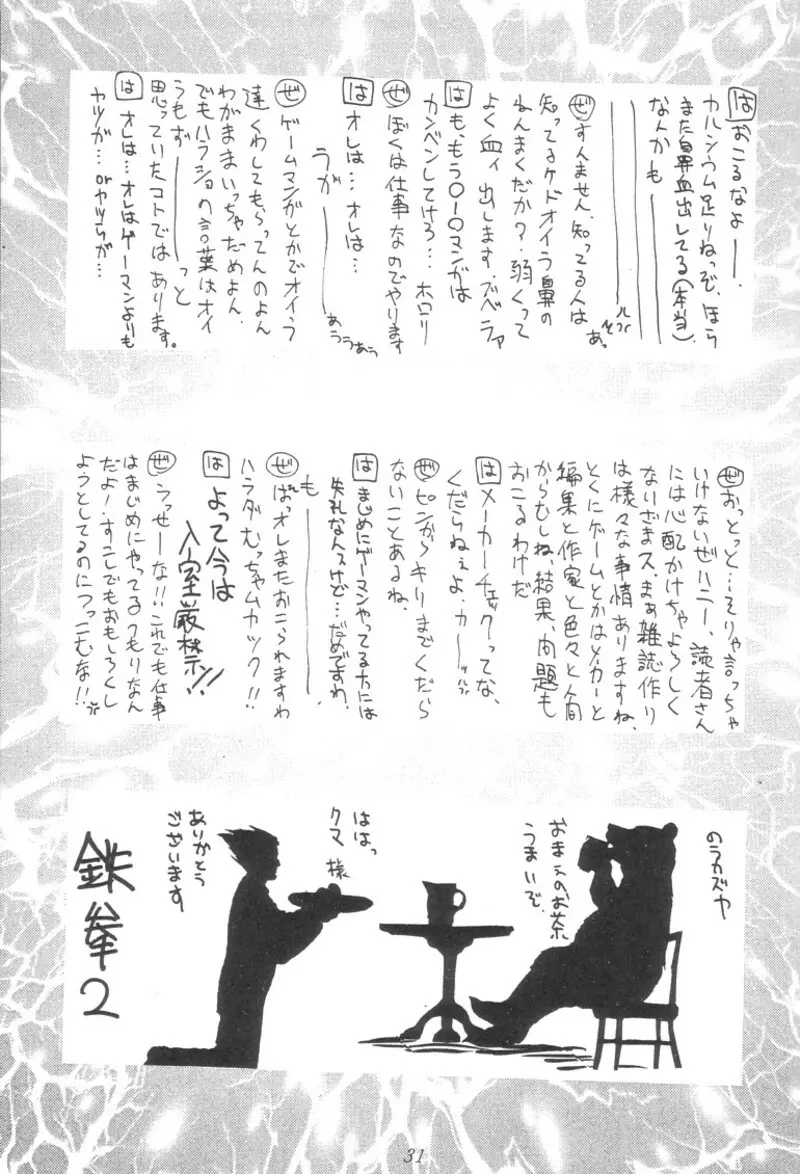 は おこるなよ――.
カルシウム足りねっぞ、ほら
また鼻血出してる(本当)
なんかも――
ぜ すんません、知ってる人は
知ってるケドオイラ鼻の
ねんまくだか?弱くって
よく血ィ出します。ブベラァ
は も、もう〇-〇マンガは
カンベンしてけろ…ホロリ
ぜ ぼくは仕事なのでやります
は オレは…オレは…
うが――
あううあう
ぜ ゲームマンガとかでオイラ
達くわしてもらってんのよん
わがままいっちゃだめよん.
でもハラショの言葉はオイ
うもず――っと
思っていたコトではあります。
は オレは…オレはゲーマンよりも
ヤツが…orヤツらが…
ぜ おっとっと…そりゃ言っちゃ
いけないぜハニー、読者さん
には心配かけちゃよろしく
ないざまス、まぁ雑誌作り
は様々な事情ありますね、
とくにゲームとかはメーカーと
編集と作家と色々と人間
からむしね、結果、問題も
おこるわけだ
は メーカーチェックってな、
くだらねぇよ、カーッ
ぜ ピンからキリまでくだら
ないことあるね、
は まじめにゲーマンやってる方には
失礼なんスけど…だめですわ、
も――.
ぜ ばっオレまたおこられますわ
ハラダむっちゃムカック!!
は よって今は
入室厳禁!!
ぜ うっせーな!!これでも仕事
はまじめにやってるつもりなん
だよ!すこしでもおもしろくし
ようとしてるのにつっこむな!!
のラカズヤ
おまえのお茶
うまいぞ.
ははっ
クマ様
ありがとう
ございます
鉄拳2
31